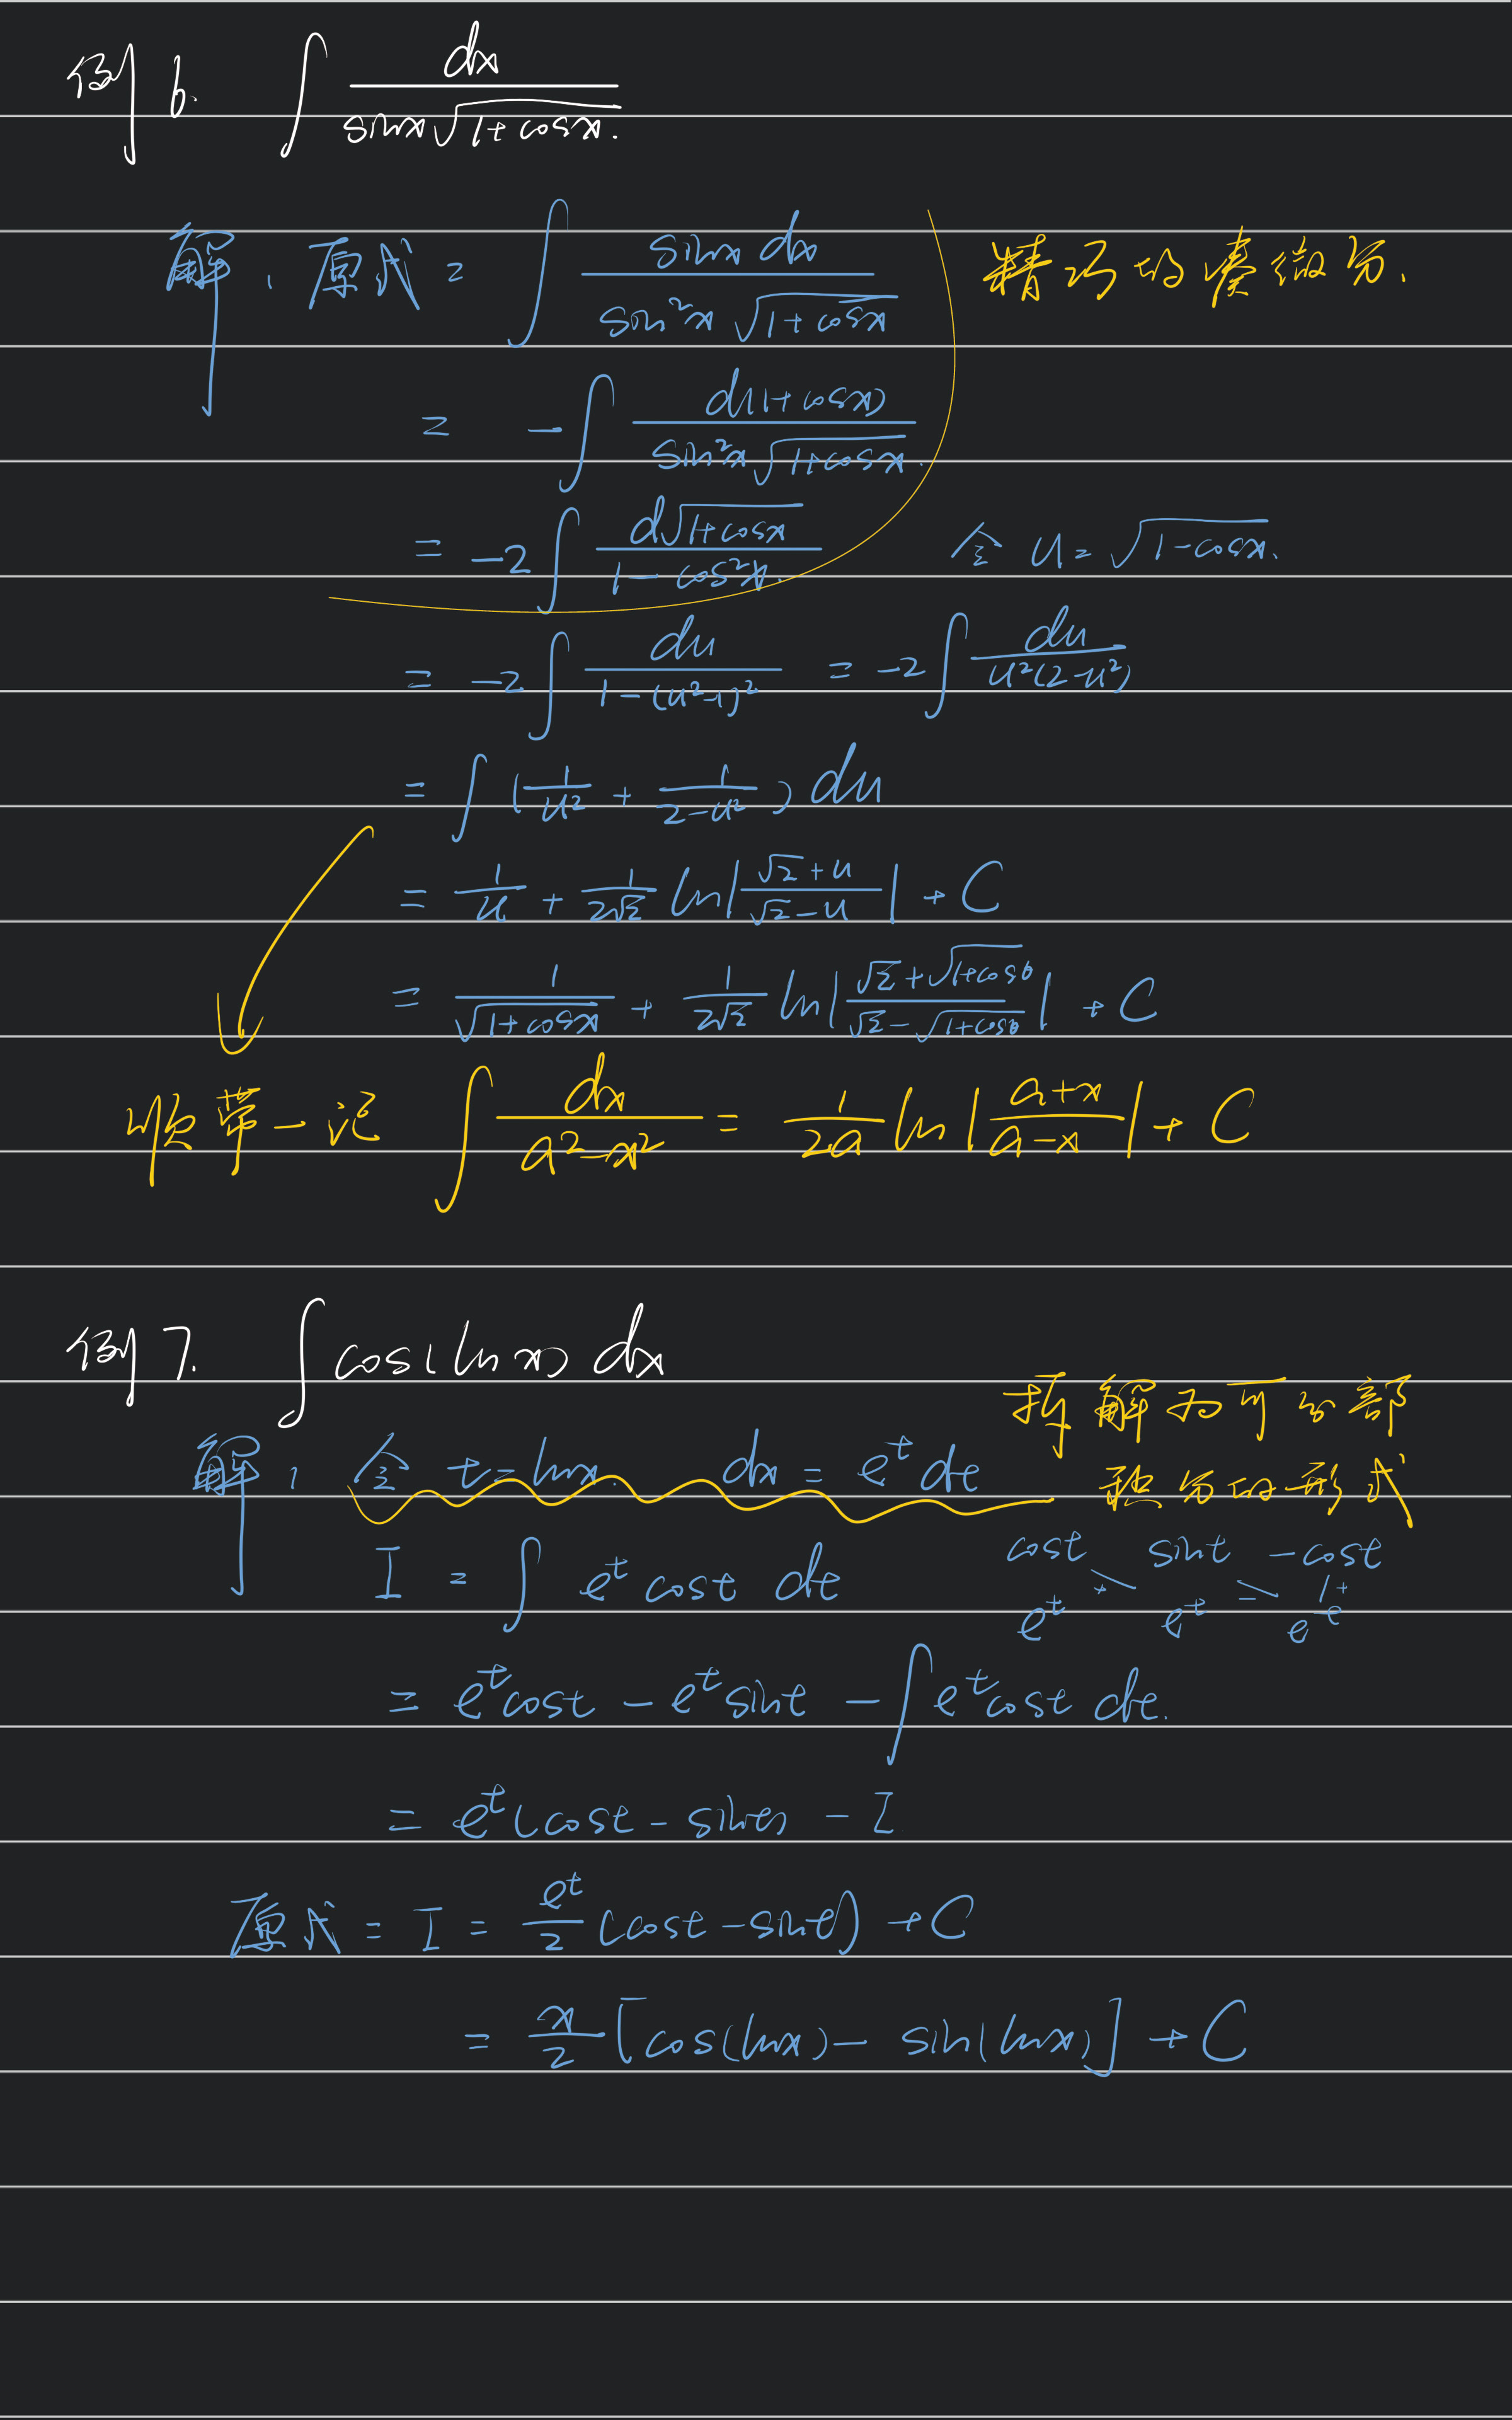 例6. ∫ dx / (sinx √(1+cosx)).
解: 原式 = ∫ sinx dx / (sin²x √(1+cosx)) 精巧的凑微分.
= -∫ d(1+cosx) / (sin²x √(1+cosx)).
= -2∫ d√(1+cosx) / (1-cos²x). 令 u=√(1-cosx).
= -2∫ du / (1-(u²-1)²) = -2∫ du / (u²(2-u²))
= ∫ (1/u² + 1/(2-u²)) du
= 1/u + 1/(2√2) ln|(√2+u)/(√2-u)| + C
= 1/√(1+cosx) + 1/(2√2) ln|(√2+√(1+cosθ))/(√2-√(1+cosθ))| + C
顺带一记 ∫ dx/(a²-x²) = 1/(2a) ln|(a+x)/(a-x)| + C
例7. ∫ cos(lnx) dx
解: 令 t=lnx. dx = eᵗ dt 拆解为可分部
积分的形式
I = ∫ eᵗ cost dt cost sint -cost
eᵗ + eᵗ - eᵗ +
= eᵗcost - eᵗsint - ∫ eᵗcost dt.
= eᵗ(cost - sint) - I
原式 = I = eᵗ/2 (cost-sint) + C
= x/2 [cos(lnx) - sin(lnx)] + C